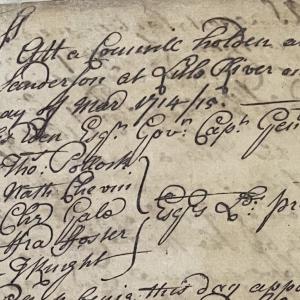 Att a Councill holden a
anderson at Litle River on
ay of Mar 1714/15.
den Esqr Govr Capt Gen
Tho: Pollock
Nath Chevin
Chr Gale
Fra Foster
T Knight
Esqrs Lds pr
this day appo